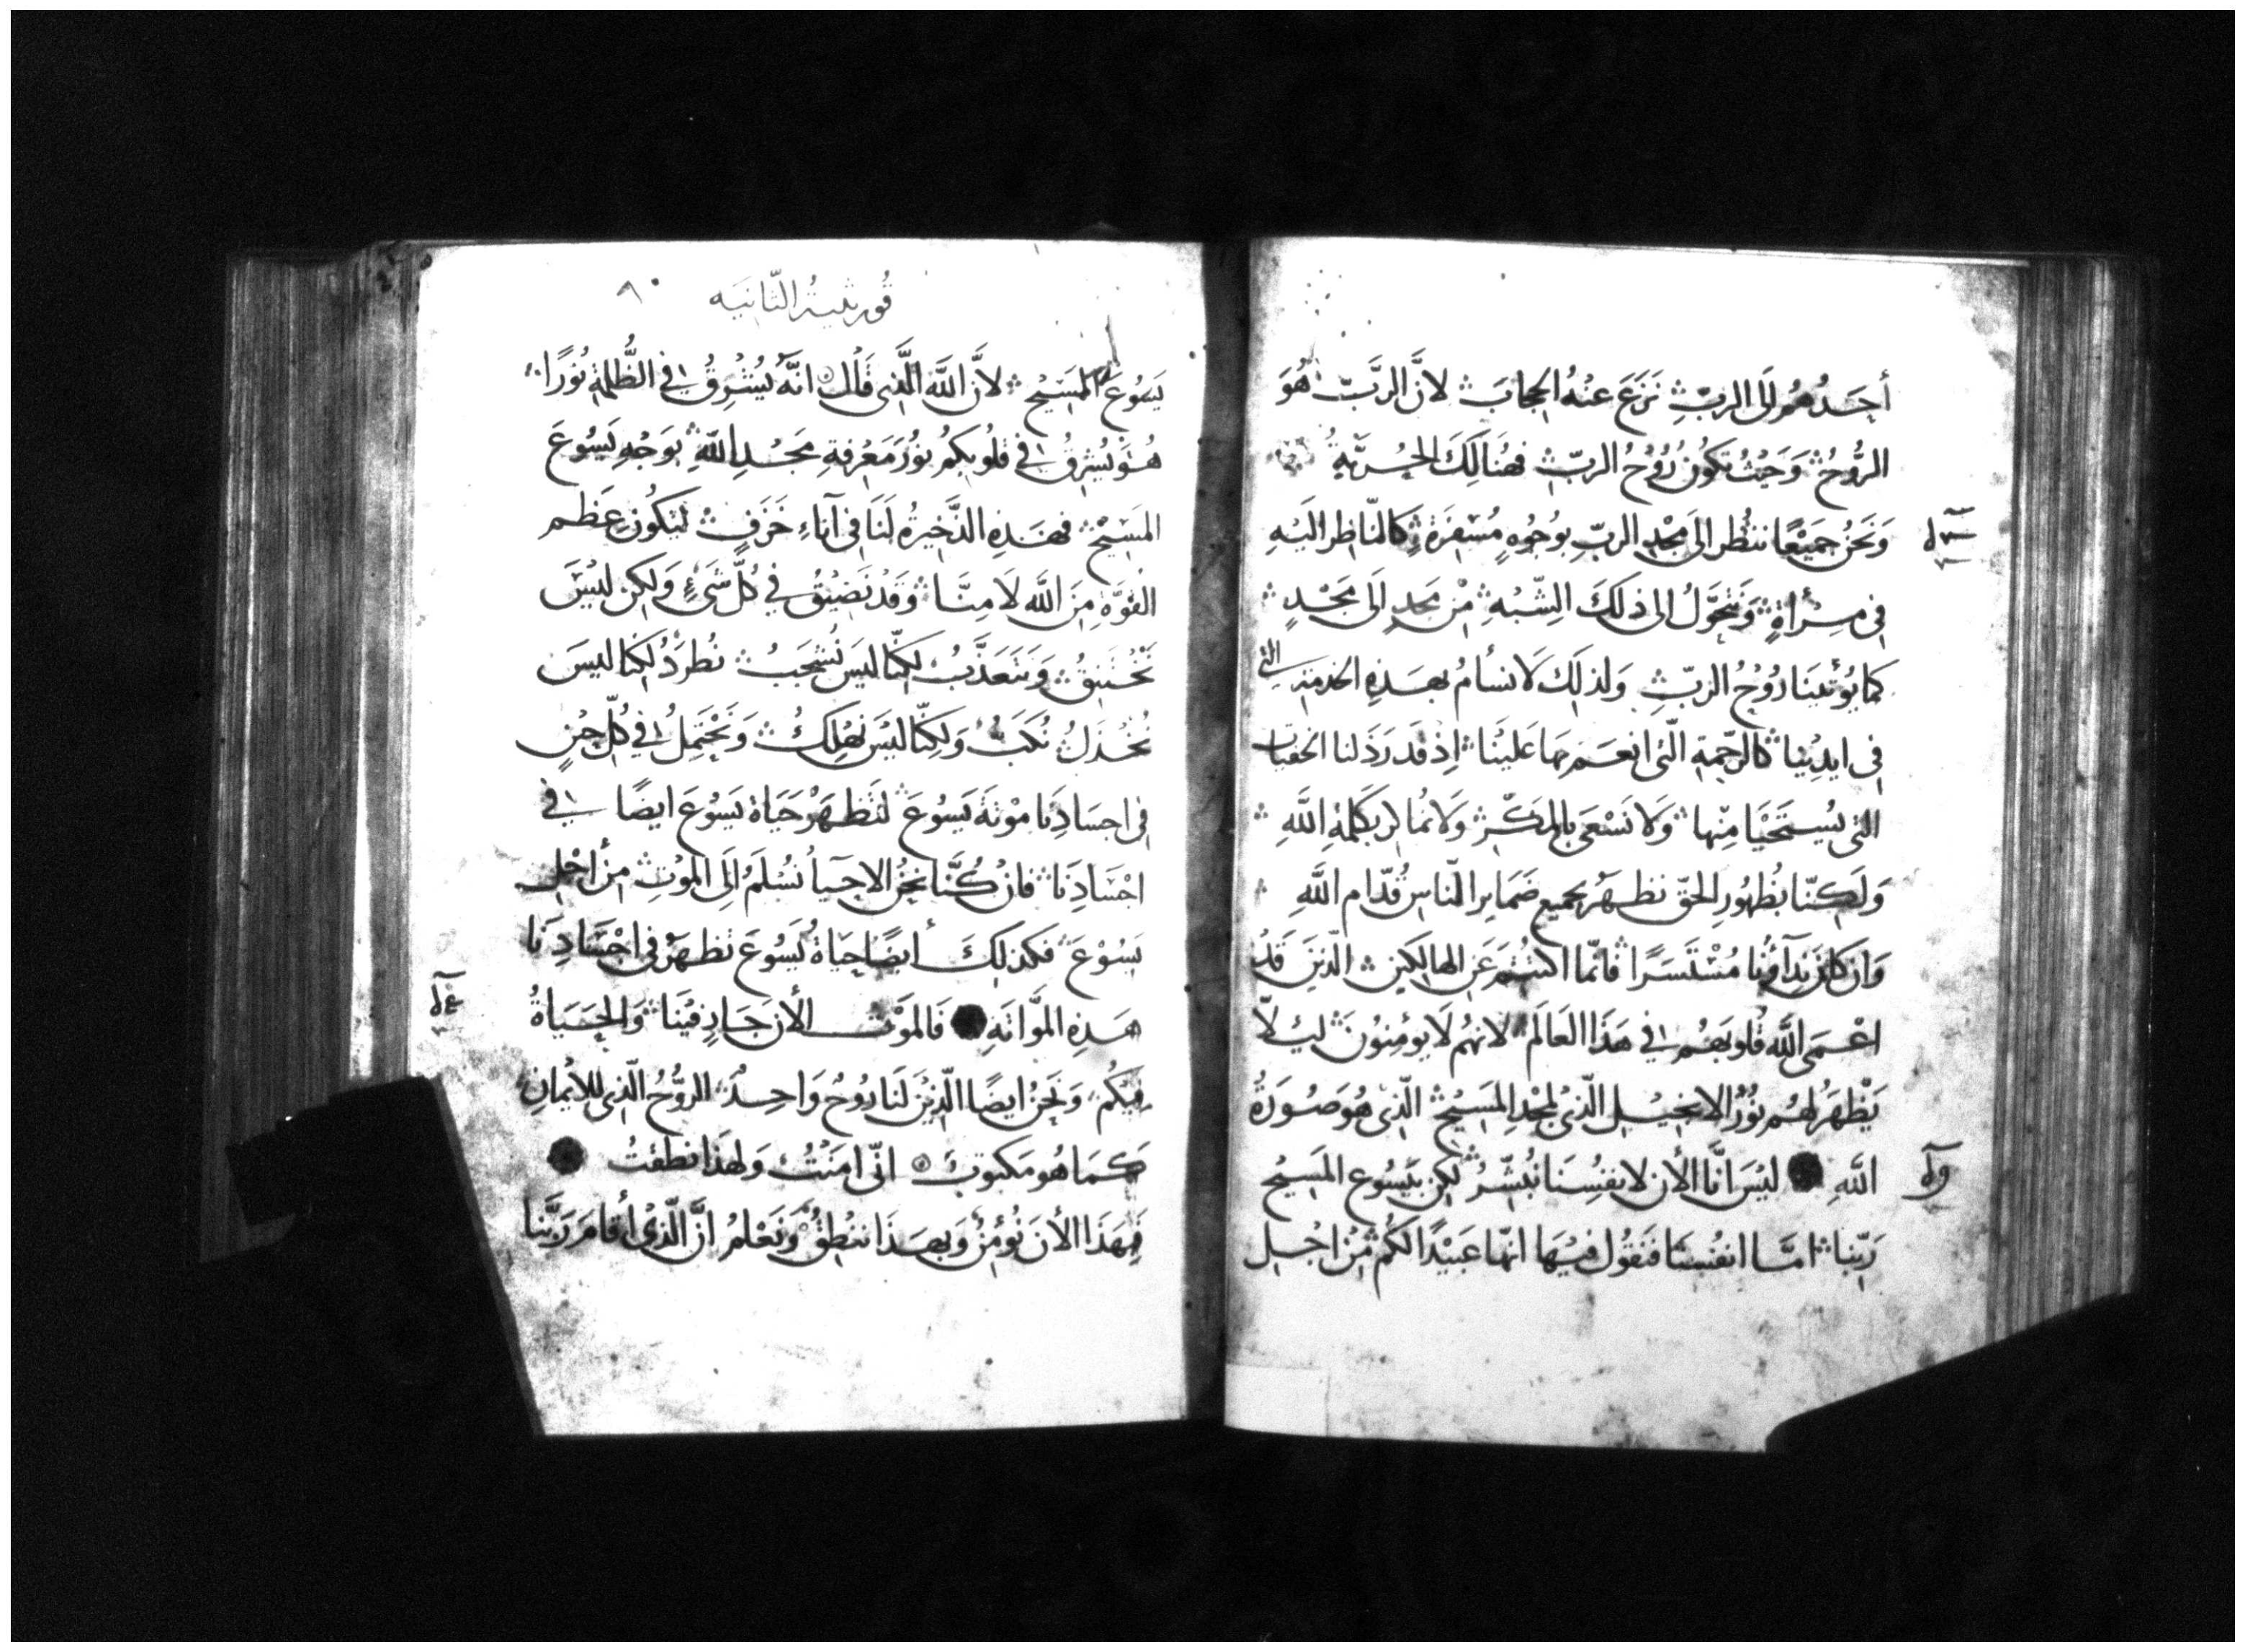 أحَدُهُم إلَى الربّ نَزَعَ عنْهُ الحِجابَ لانَّ الربَّ هُوَ
الرُّوحُ وَحَيْثُ تكونُ رُوْحُ الربّ فهُنَالِكَ الحُرّيَّةُ
وَنَحنُ جَمِيْعًا ننظُر الى مَجْدِ الربّ بوُجُوهٍ مُسْفِرَةٍ كالنّاظِر اليْهِ
في مِرْأةٍ وَنَتحَوَّلُ الى ذلكَ الشّبْهِ مِنْ مَجدٍ الَى مَجْدٍ
كما يُؤتينَا رُوْحُ الربّ وَلذلِكَ لاَ نسأمُ بهَذِهِ الخدمَةِ التي
في ايدِيْنا كالرّحمةِ الّتي انعَمَ بهَا عَليْنا اِذْ قد رَذَلنا الخفيّات
التي يُسْتَحْيَا مِنْها وَلاَ نَسْعَى بالمَكْرِ وَلاَ نُماكر بكَلمةِ اللَّهِ
وَلَكنّا بظُهُورِ الحَق نظهَرُ لجميع ضَمَاير النّاس قُدّام اللَّهِ
وَان كانَ نِدآؤُنا مُسْتَسَرًا فانّما اكتُتمَ عَنِ الهالكِين الّذينَ قَدْ
اعْمَى اللَّه قُلوبَهُم في هَذَا العَالَم لانهُم لاَ يؤمِنُونَ لئلاّ
يَظْهَرَ لهُم نُوْرُ الانجِيْلِ الّذِيْ لمَجْدِ المَسِيْحِ الّذي هُوَ صُورَةُ
اللَّهِ ليْسَ انَّا الأن لانفُسِنَا نُبَشّرُ لكِن بيَسُوع المَسِيْح
رَبّنا امَّا انفُسنَا فنَقُول فيْها انّما عَبيْدًا لكُم مِنْ اجْل
قورنثية الثّانيَه ٩٠
يَسُوعَ المَسِيْحِ لاَنَّ اللَّهَ الَّذي قَالَ انَّهُ يُشرِقُ في الظُّلمةِ نُورًا
هُوَ يُشرقُ في قلُوبكم نُورَ مَعْرفةِ مَجْدِ اللَّهِ بوَجْهِ يَسُوعَ
المَسِيْحِ فهَذِهِ الذَّخِيرةُ لَنَا في آناءِ خَزَفٍ لتَكونَ عَظم
القُوّةِ مِنَ اللَّه لاَ مِنَّا وَقَدْ نَضيْقُ في كُلّ شَيْءٍ وَلكن ليْسَ
نَخْتَنِقُ وَنَتَعَذَّبُ لكِنّا ليسَ نُشْجَبُ نُطرَدُ لكنّا ليسَ
نُخذَلُ نُكَبُّ وَلكِنّا ليْسَ نَهْلِكُ وَنَحْتَمِلُ في كُلّ حِيْنٍ
في اجسَادِنَا مَوْتَةَ يَسُوعَ لتَظهَرَ حَيَاة يَسُوعَ ايضًا في
اجْسَادِنَا فان كُنَّا نحنُ الاحيَا نُسْلَمُ الَى المَوْتِ مِنْ اجْلِ
يَسُوْعَ فكذلِكَ أيضًا حَيَاةُ يَسُوعَ تظهَرُ في اجْسَادِنَا
هَذِهِ المَوَّاتَةِ فَالمَوْت الأن جَادٍ فيْنَا وَالحَيَاةُ
فِيكُم وَنَحنُ ايضًا الّذِيْنَ لَنَا رُوحٌ وَاحِدٌ الرُّوْحُ الّذي للاِيْمانِ
كمَا هُو مَكتوبٌ انّي امَنْتُ وَلهَذَا نطَقتُ
فَبِهَذَا الأنَ نُؤمِنُ وَبهَذَا ننْطِقُ وَنَعْلمُ انَّ الّذِي أقامَ رَبَّنا